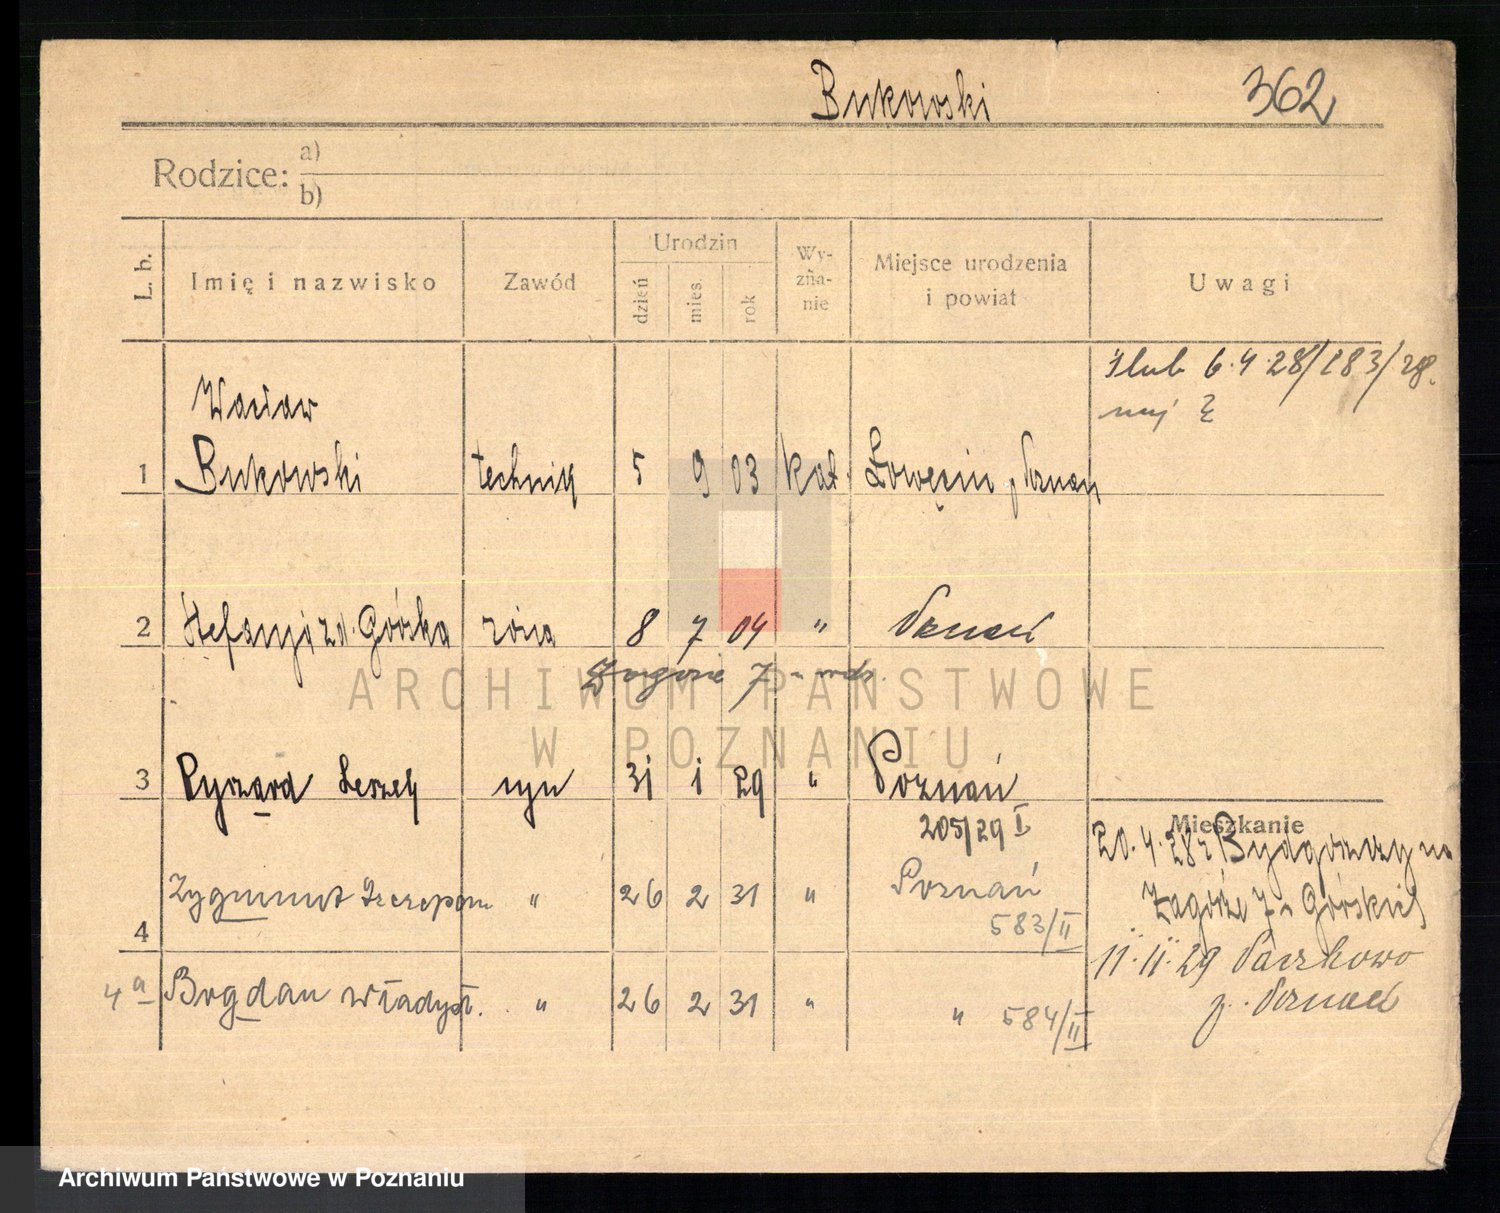 Bukowski 362
Rodzice: a)
b)
L. b. Imię i nazwisko Zawód Urodzin dzień mies. rok Wy-zna-nie Miejsce urodzenia i powiat Uwagi
Ślub 6.4.28/183/28.
Wacław
1 Bukowski technik 5 9 03 kat. Łowęcin p. Poznań
2 Stefanja zd. Górska żona 8 7 04 " Poznań
Zagórze 7
ARCHIWUM PAŃSTWOWE
W POZNANIU
3 Ryszard Leszek syn 31 1 29 " Poznań
205/29 I
Mieszkanie
20.4.28 z Bydgoszczy na
Zagórze 7 u Górskich
4 Zygmunt Szczepan " 26 2 31 " Poznań
583/II
11.11.29 Paczkowo
p. Poznań
4a Bogdan Władysł. " 26 2 31 " " 584/II
Archiwum Państwowe w Poznaniu